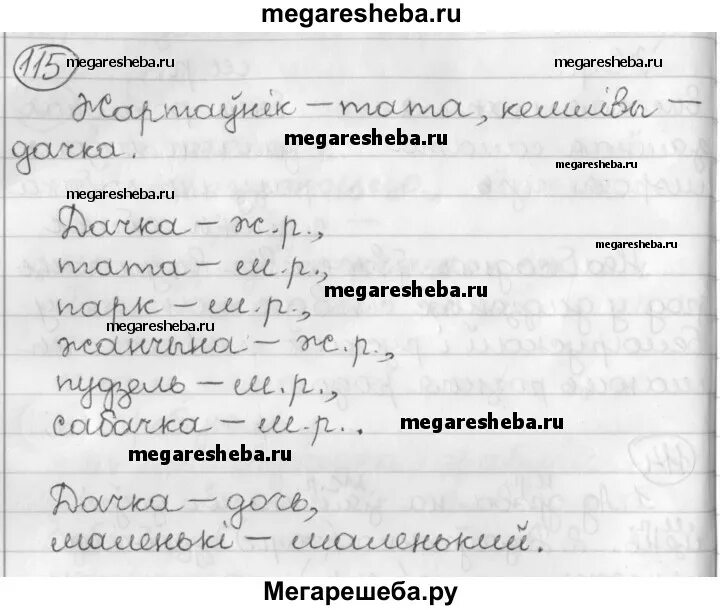 megaresheba.ru
115 megaresheba.ru megaresheba.ru
Жартаўнік – тата, кемлівы –
megaresheba.ru
дачка.
megaresheba.ru
megaresheba.ru
Дачка – ж.р.,
megaresheba.ru
тата – м.р.,
megaresheba.ru
парк – м.р.,
megaresheba.ru
жанчына – ж.р.,
пудзель – м.р.,
сабачка – м.р..
megaresheba.ru
megaresheba.ru
Дачка – дочь,
маленькі – маленький.
Мегарешеба.ру